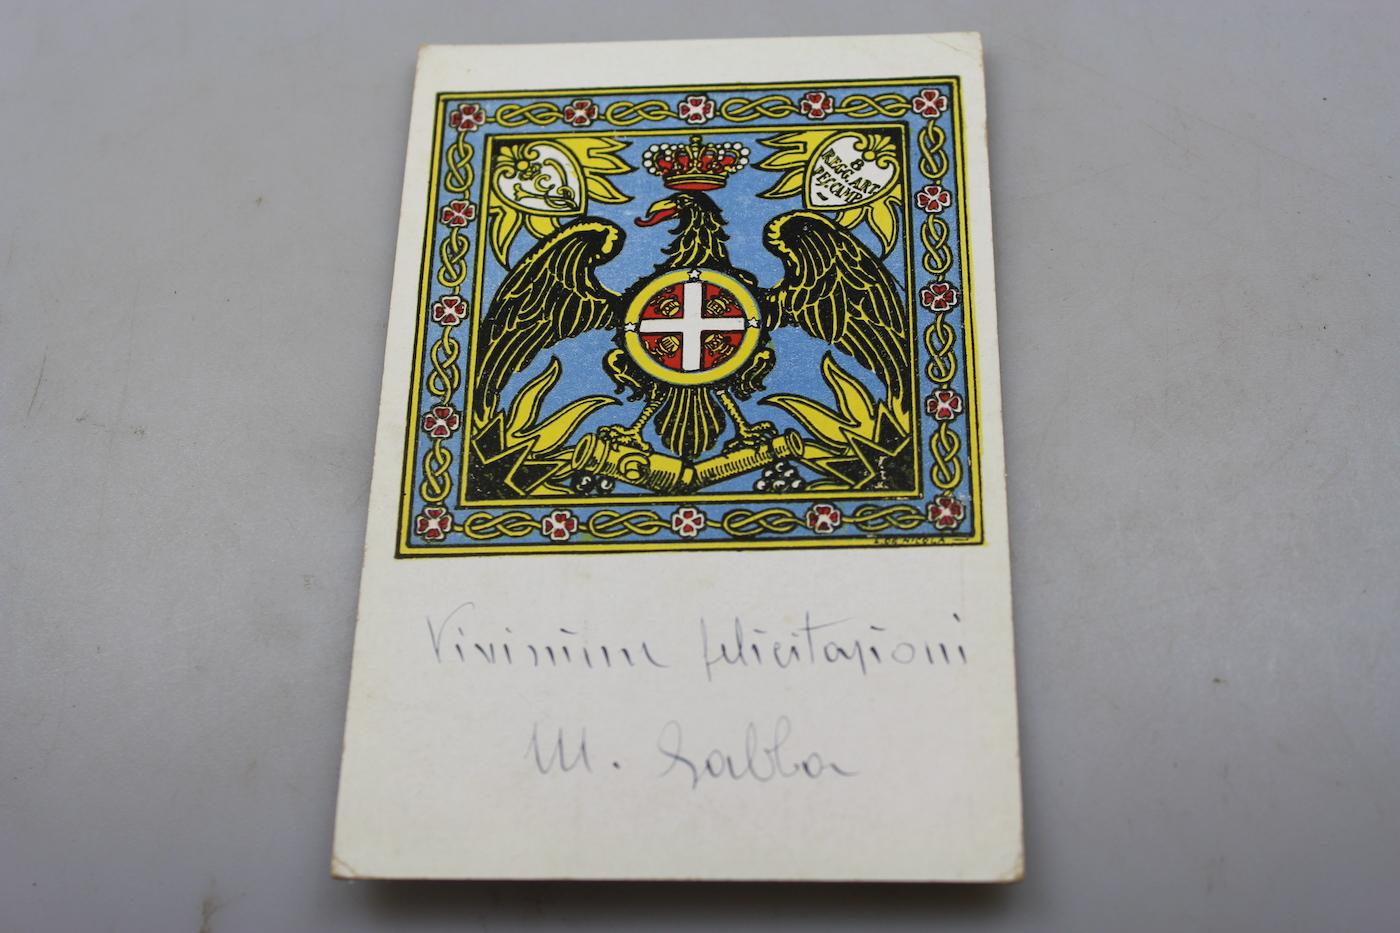 8
REGG. ART.
PES. CAMP.
L. DE NICOLA
Vivissime felicitazioni
M. Gabba